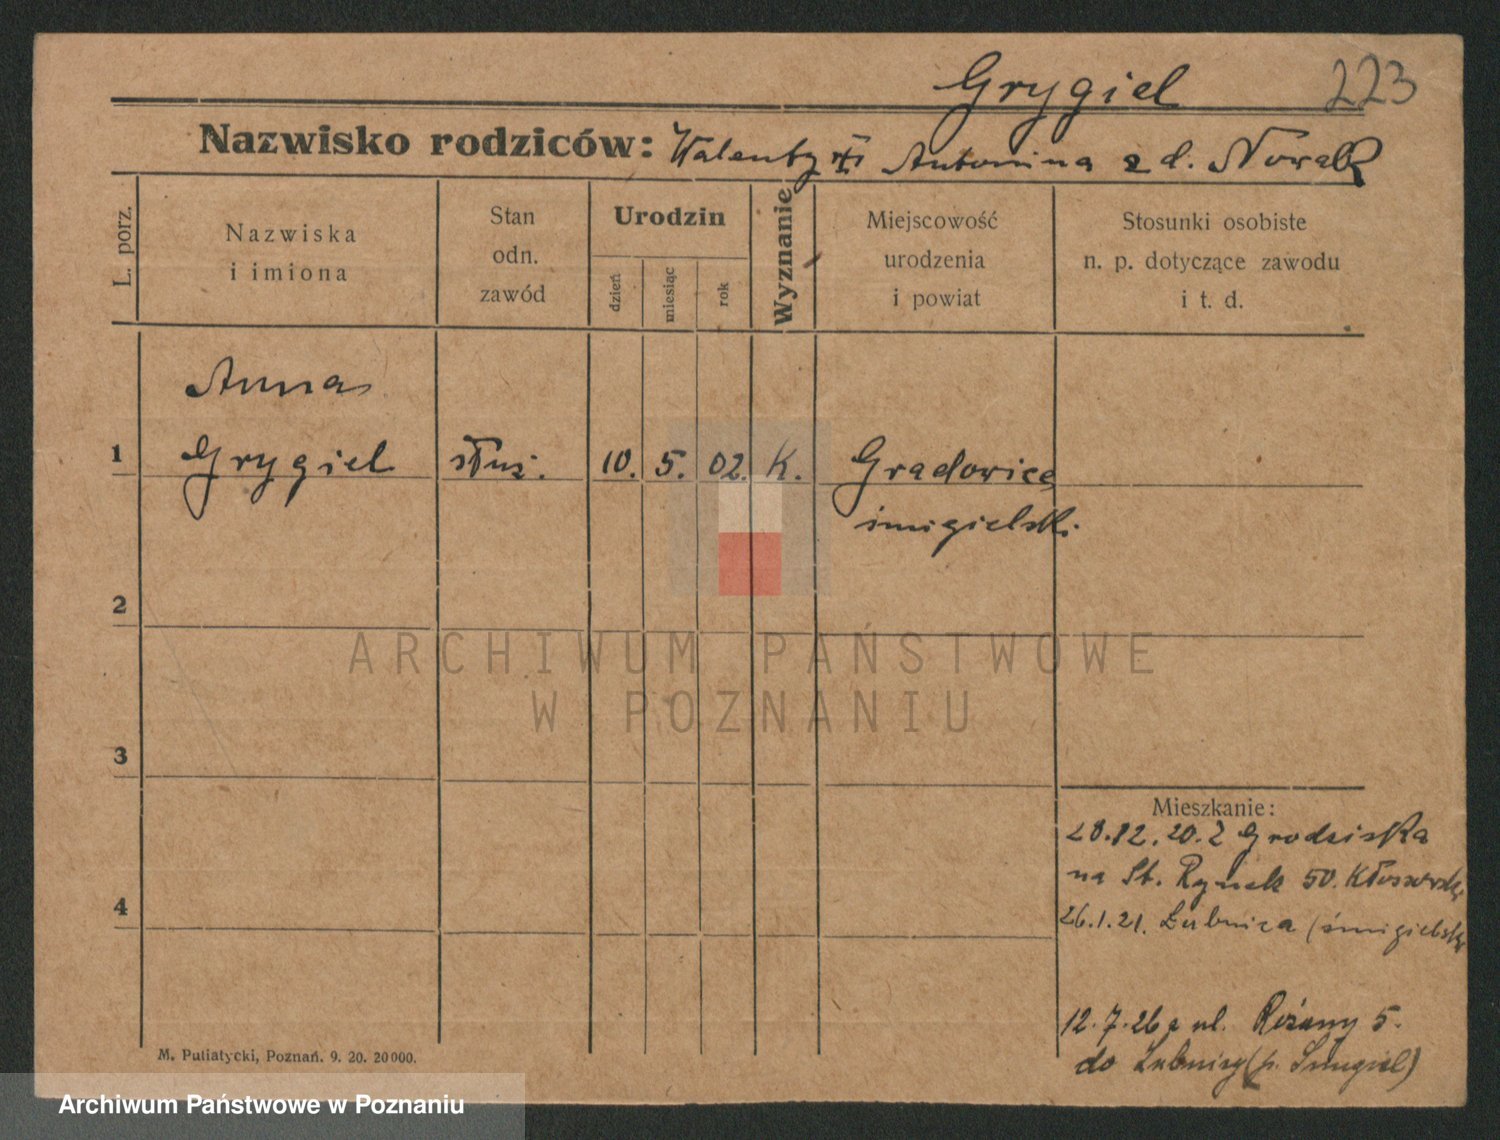 Grygiel 223
Nazwisko rodziców: Walenty Antonina z d. Nowak
L. porz.
Nazwiska
i imiona
Stan
odn.
zawód
Urodzin
dzień
miesiąc
rok
Wyznanie
Miejscowość
urodzenia
i powiat
Stosunki osobiste
n. p. dotyczące zawodu
i t. d.
Anna
1 Grygiel służ. 10. 5. 02. K. Gradowice
śmigielski
2
ARCHIWUM PAŃSTWOWE
W POZNANIU
3
Mieszkanie:
28.12.20. z Grodziska
na St. Rynek 50.
4
26.1.21. Łubnica (śmigielski
12.7.26 z ul. Różany 5.
do Łubnicy (p. Śmigiel)
M. Putiatycki, Poznań. 9. 20. 20000.
Archiwum Państwowe w Poznaniu